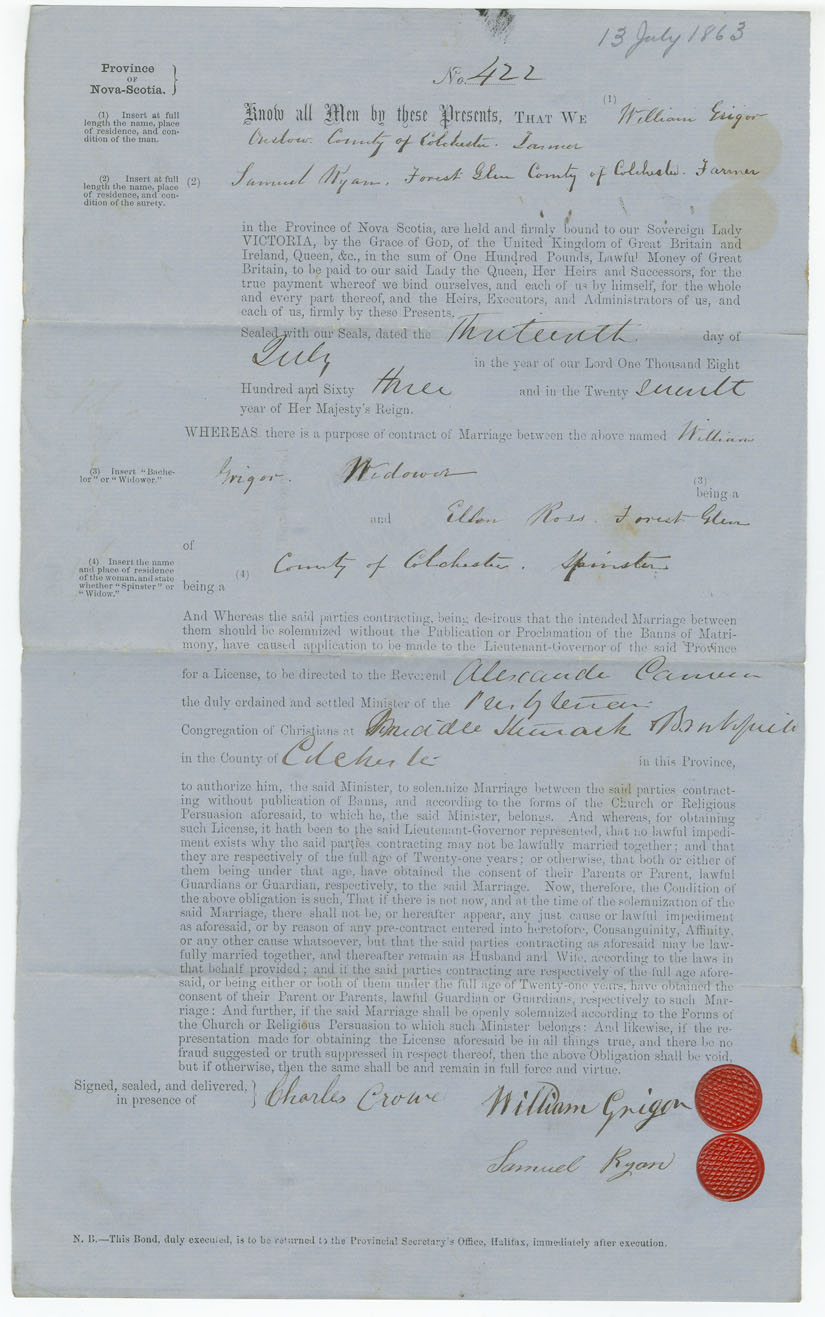 13 July 1863
Province
OF
Nova-Scotia. }
No. 422
(1) Insert at full
length the name, place
of residence, and con-
dition of the man.
Know all Men by these Presents, THAT WE (1) William Grigor
Onslow County of Colchester. Farmer
(2) Insert at full
length the name, place
of residence, and con-
dition of the surety.
(2) Samuel Ryan. Forest Glen County of Colchester. Farmer
in the Province of Nova Scotia, are held and firmly bound to our Sovereign Lady
VICTORIA, by the Grace of GOD, of the United Kingdom of Great Britain and
Ireland, Queen, &c., in the sum of One Hundred Pounds, Lawful Money of Great
Britain, to be paid to our said Lady the Queen, Her Heirs and Successors, for the
true payment whereof we bind ourselves, and each of us by himself, for the whole
and every part thereof, and the Heirs, Executors, and Administrators of us, and
each of us, firmly by these Presents.
Sealed with our Seals, dated the Thirteenth day of
July in the year of our Lord One Thousand Eight
Hundred and Sixty three and in the Twenty seventh
year of Her Majesty's Reign.
WHEREAS there is a purpose of contract of Marriage between the above named William
(3) Insert "Bache-
lor" or "Widower."
Grigor. Widower (3)
being a
and Ellen Ross. Forest Glen
of
(4) Insert the name
and place of residence
of the woman, and state
whether "Spinster" or
"Widow."
(4) County of Colchester. Spinster
being a
And Whereas the said parties contracting, being desirous that the intended Marriage between
them should be solemnized without the Publication or Proclamation of the Banns of Matri-
mony, have caused application to be made to the Lieutenant-Governor of the said Province
for a License, to be directed to the Reverend Alexander Cameron
the duly ordained and settled Minister of the Presbyterian
Congregation of Christians at Middle Stewiack & Brookfield
in the County of Colchester in this Province,
to authorize him, the said Minister, to solemnize Marriage between the said parties contract-
ing without publication of Banns, and according to the forms of the Church or Religious
Persuasion aforesaid, to which he, the said Minister, belongs. And whereas, for obtaining
such License, it hath been to the said Lieutenant-Governor represented, that no lawful impedi-
ment exists why the said parties contracting may not be lawfully married together; and that
they are respectively of the full age of Twenty-one years; or otherwise, that both or either of
them being under that age, have obtained the consent of their Parents or Parent, lawful
Guardians or Guardian, respectively, to the said Marriage. Now, therefore, the Condition of
the above obligation is such, That if there is not now, and at the time of the solemnization of the
said Marriage, there shall not be, or hereafter appear, any just cause or lawful impediment
as aforesaid, or by reason of any pre-contract entered into heretofore, Consanguinity, Affinity,
or any other cause whatsoever, but that the said parties contracting as aforesaid may be law-
fully married together, and thereafter remain as Husband and Wife, according to the laws in
that behalf provided; and if the said parties contracting are respectively of the full age afore-
said, or being either or both of them under the full age of Twenty-one years, have obtained the
consent of their Parent or Parents, lawful Guardian or Guardians, respectively to such Mar-
riage: And further, if the said Marriage shall be openly solemnized according to the Forms of
the Church or Religious Persuasion to which such Minister belongs: And likewise, if the re-
presentation made for obtaining the License aforesaid be in all things true, and there be no
fraud suggested or truth suppressed in respect thereof, then the above Obligation shall be void,
but if otherwise, then the same shall be and remain in full force and virtue.
Signed, sealed, and delivered,
in presence of } Charles Crowe William Grigor
Samuel Ryan
N. B.—This Bond, duly executed, is to be returned to the Provincial Secretary's Office, Halifax, immediately after execution.